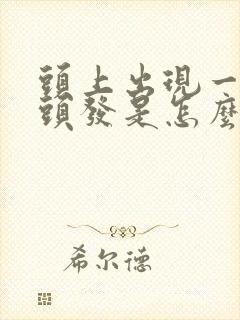 頭上出現一
頭發是怎麼
希尔德